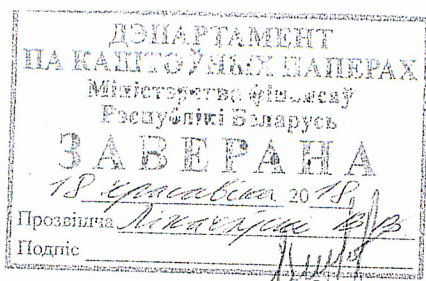 ДЭПАРТАМЕНТ
ПА КАШТОЎНЫХ ПАПЕРАХ
Міністэрства фінансаў
Рэспублікі Беларусь
ЗАВЕРАНА
18 красавіка 2018
Прозвішча В В
Подпіс